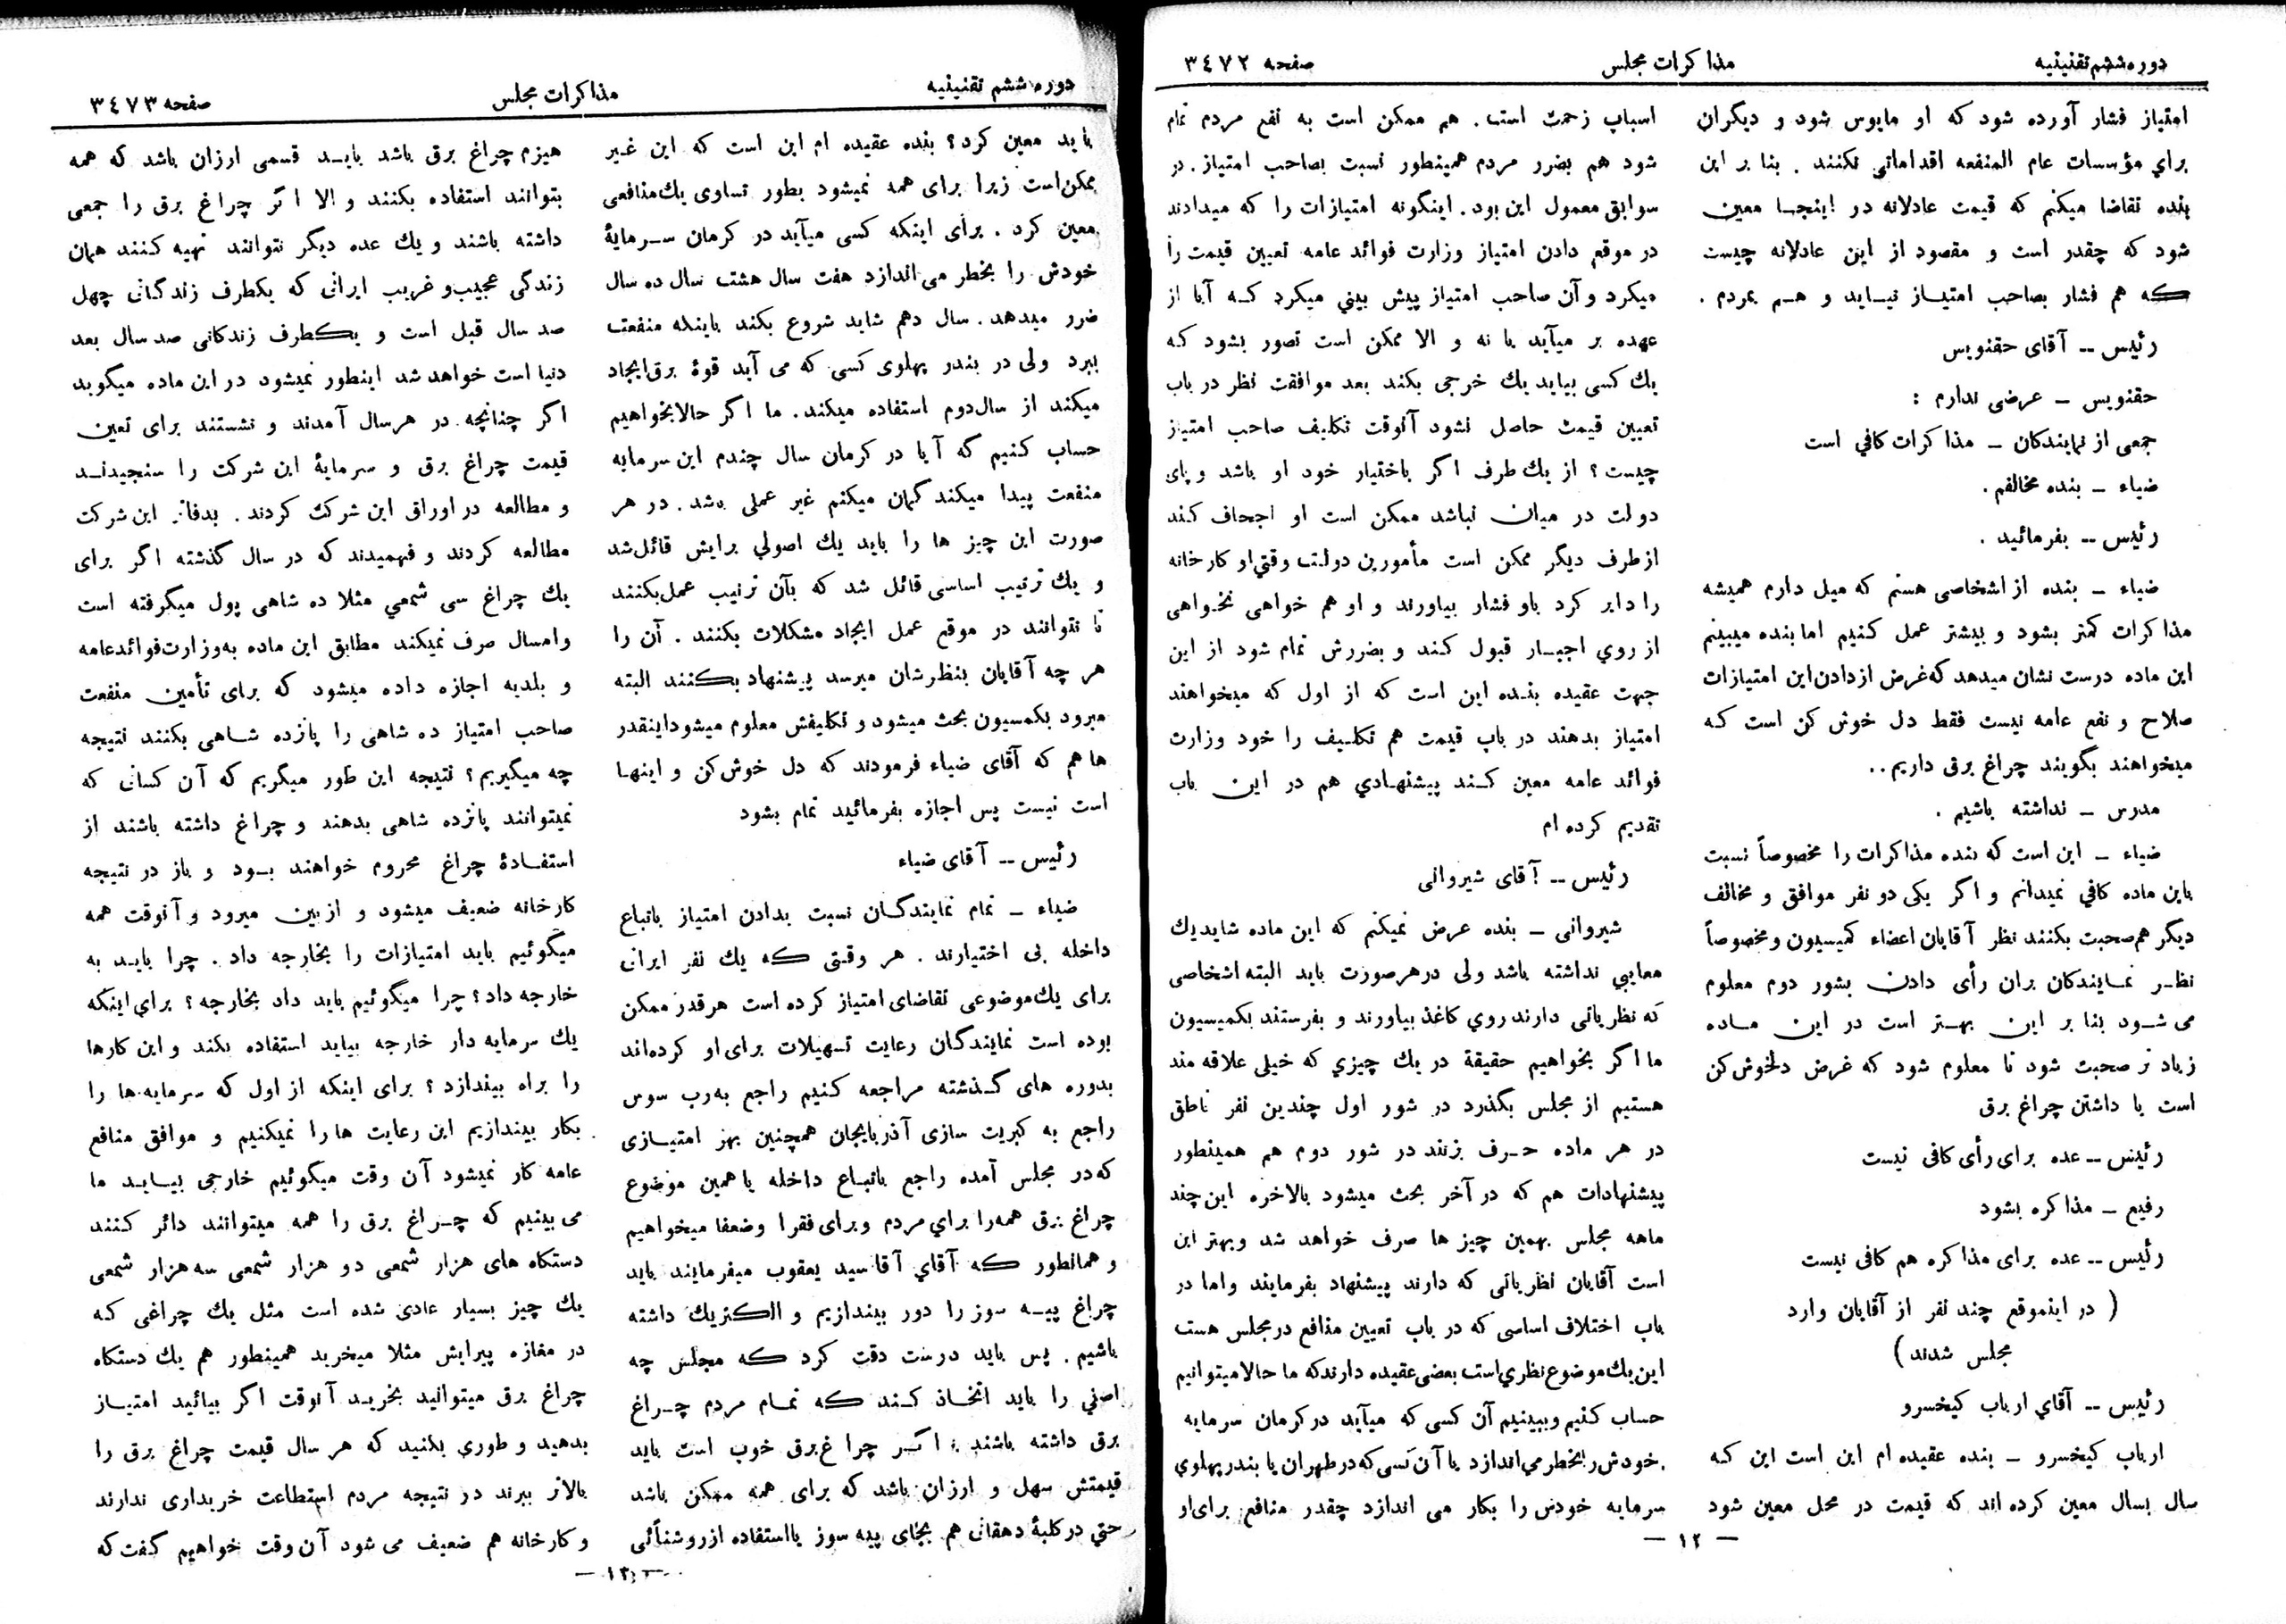 دوره ششم تقنینیه
مذاکرات مجلس
صفحه ۳٤۷۲
امتیاز فشار آورده شود که او مایوس شود و دیگران
براي مؤسسات عام المنفعه اقداماتی نکنند . بنا بر این
بنده تقاضا میکنم که قیمت عادلانه در اینجا معین
شود که چقدر است و مقصود از این عادلانه چیست
که هم فشار بصاحب امتیاز نیاید و هم بمردم .
رئیس -- آقای حقنویس
حقنویس - عرضی ندارم :
جمعی از نمایندکان - مذاکرات کافي است
ضیاء - بنده مخالفم .
رئیس -- بفرمائید .
ضیاء - بنده از اشخاصی هستم که میل دارم همیشه
مذاکرات کمتر بشود و بیشتر عمل کنیم اما بنده میبینم
این ماده درست نشان میدهد که غرض از دادن این امتیازات
صلاح و نفع عامه نیست فقط دل خوش کن است که
میخواهند بگویند چراغ برق داریم..
مدرس - نداشته باشیم .
ضیاء - این است که بنده مذاکرات را مخصوصاً نسبت
باین ماده کافي نمیدانم و اگر یکی دو نفر موافق و مخالف
دیگر هم صحبت بکنند نظر آقایان اعضاء کمیسیون و مخصوصاً
نظر نمایندکان بران رأی دادن بشور دوم معلوم
می شود بنا بر این بهتر است در این ماده
زیاد تر صحبت شود تا معلوم شود که غرض دلخوش کن
است یا داشتن چراغ برق
رئیس -- عده برای رأی کافی نیست
رفیع - مذاکره بشود
رئیس -- عده برای مذاکره هم کافی نیست
( در اینموقع چند نفر از آقایان وارد
مجلس شدند )
رئیس -- آقاي ارباب کیخسرو
ارباب کیخسرو - بنده عقیده ام این است این که
سال بسال معین کرده اند که قیمت در محل معین شود
اسباب زحمت است . هم ممکن است به نفع مردم تمام
شود هم بضرر مردم همینطور نسبت بصاحب امتیاز . در
سوابق معمول این بود . اینگونه امتیازات را که میدادند
در موقع دادن امتیاز وزارت فوائد عامه تعیین قیمت را
میکرد و آن صاحب امتیاز پیش بیني میکرد که آیا از
عهده بر میآید یا نه و الا ممکن است تصور بشود که
یك کسی بیاید یك خرجی بکند بعد موافقت نظر در باب
تعیین قیمت حاصل نشود آنوقت تکلیف صاحب امتیاز
چیست ؟ از یك طرف اگر باختیار خود او باشد و پای
دولت در میان نباشد ممکن است او اجحاف کند
از طرف دیگر ممکن است مأمورین دولت وقتي او کارخانه
را دایر کرد باو فشار بیاورند و او هم خواهی نخواهی
از روي اجبار قبول کند و بضررش تمام شود از این
جهت عقیده بنده این است که از اول که میخواهند
امتیاز بدهند در باب قیمت هم تکلیف را خود وزارت
فوائد عامه معین کند پیشنهادي هم در این باب
تقدیم کرده ام
رئیس -- آقای شیروانی
شیروانی - بنده عرض نمیکنم که این ماده شاید یك
معایبي نداشته باشد ولی در هر صورت باید البته اشخاصی
که نظریاتی دارند روي کاغذ بیاورند و بفرستند بکمیسیون
ما اگر بخواهیم حقیقة در یك چیزي که خیلی علاقه مند
هستیم از مجلس بگذرد در شور اول چندین نفر ناطق
در هر ماده حرف بزنند در شور دوم هم همینطور
پیشنهادات هم که در آخر بحث میشود بالاخره این چند
ماهه مجلس بهمین چیز ها صرف خواهد شد و بهتر این
است آقایان نظریاتی که دارند پیشنهاد بفرمایند و اما در
باب اختلاف اساسی که در باب تعیین منافع در مجلس هست
این یك موضوع نظري است بعضی عقیده دارند که ما حالا میتوانیم
حساب کنیم و ببینیم آن کسی که میآید در کرمان سرمایه
خودش را بخطر می اندازد یا آن کسی که در طهران یا بندر پهلوي
سرمایه خودش را بکار می اندازد چقدر منافع برای او
— ۱۲ —
دوره ششم تقنینیه
مذاکرات مجلس
صفحه ۳٤۷۳
باید معین کرد ؟ بنده عقیده ام این است که این غیر
ممکن است زیرا برای همه نمیشود بطور تساوی یك منافعی
معین کرد . برای اینکه کسی میآید در کرمان سرمایهٔ
خودش را بخطر می اندازد هفت سال هشت سال ده سال
ضرر میدهد . سال دهم شاید شروع بکند باینکه منفعت
ببرد ولی در بندر پهلوی کسی که می آید قوهٔ برق ایجاد
میکند از سال دوم استفاده میکند . ما اگر حالا بخواهیم
حساب کنیم که آیا در کرمان سال چندم این سرمایه
منفعت پیدا میکند گمان میکنم غیر عملی باشد . در هر
صورت این چیز ها را باید یك اصولي برایش قائل شد
و یك ترتیب اساسی قائل شد که بآن ترتیب عمل بکنند
تا نتوانند در موقع عمل ایجاد مشکلات بکنند . آن را
هر چه آقایان بنظرشان میرسد پیشنهاد بکنند البته
میرود بکمسیون بحث میشود و تکلیفش معلوم میشود اینقدر
ها هم که آقای ضیاء فرمودند که دل خوش کن و اینها
است نیست پس اجازه بفرمائید تمام بشود
رئیس -- آقای ضیاء
ضیاء - تمام نمایندگان نسبت بدادن امتیاز باتباع
داخله بی اختیارند . هر وقتی که یك نفر ایرانی
برای یك موضوعی تقاضای امتیاز کرده است هر قدر ممکن
بوده است نمایندگان رعایت تسهیلات برای او کرده اند
بدوره های گذشته مراجعه کنیم راجع به رب سوس
راجع به کبریت سازی آذربایجان همچنین بهر امتیازی
که در مجلس آمده راجع باتباع داخله یا همین موضوع
چراغ برق همه را براي مردم و برای فقرا و ضعفا میخواهیم
و همانطور که آقاي آقا سید یعقوب میفرمایند باید
چراغ پیه سوز را دور بیندازیم و الکتریك داشته
باشیم . پس باید درست دقت کرد که مجلس چه
اصلي را باید اتخاذ کند که تمام مردم چراغ
برق داشته باشند : اگر چراغ برق خوب است باید
قیمتش سهل و ارزان باشد که برای همه ممکن باشد
حتي در کلبهٔ دهقانی هم بجای پیه سوز با استفاده از روشنائی
هیزم چراغ برق باشد باید قسمی ارزان باشد که همه
بتوانند استفاده بکنند و الا اگر چراغ برق را جمعی
داشته باشند و یك عده دیگر نتوانند تهیه کنند همان
زندگی عجیب و غریب ایرانی که یکطرف زندگانی چهل
صد سال قبل است و یکطرف زندکانی صد سال بعد
دنیا است خواهد شد اینطور نمیشود در این ماده میگوید
اگر چنانچه در هر سال آمدند و نشستند برای تعین
قیمت چراغ برق و سرمایهٔ این شرکت را سنجیدند
و مطالعه در اوراق این شرکت کردند . بدفاتر این شرکت
مطالعه کردند و فهمیدند که در سال گذشته اگر برای
یك چراغ سی شمعي مثلا ده شاهی پول میگرفته است
و امسال صرف نمیکند مطابق این ماده به وزارت فوائد عامه
و بلدیه اجازه داده میشود که برای تأمین منفعت
صاحب امتیاز ده شاهی را پانزده شاهی بکنند نتیجه
چه میگیریم ؟ نتیجه این طور میگریم که آن کسانی که
نمیتوانند پانزده شاهی بدهند و چراغ داشته باشند از
استفادهٔ چراغ محروم خواهند بود و باز در نتیجه
کارخانه ضعیف میشود و از بین میرود و آنوقت همه
میگوئیم باید امتیازات را بخارجه داد . چرا باید به
خارجه داد ؟ چرا میگوئیم باید داد بخارجه ؟ براي اینکه
یك سرمایه دار خارجه بیاید استفاده بکند و این کارها
را براه بیندازد ؟ برای اینکه از اول که سرمایه ها را
بکار بیندازیم این رعایت ها را نمیکنیم و موافق منافع
عامه کار نمیشود آن وقت میگوئیم خارجی بیاید ما
می بینیم که چراغ برق را همه میتوانند دائر کنند
دستکاه های هزار شمعی دو هزار شمعی سه هزار شمعی
یك چیز بسیار عادی شده است مثل یك چراغی که
در مغازه پیرایش مثلا میخرید همینطور هم یك دستکاه
چراغ برق میتوانید بخرید آنوقت اگر بیائید امتیاز
بدهید و طوری بکنید که هر سال قیمت چراغ برق را
بالاتر ببرند در نتیجه مردم استطاعت خریداری ندارند
و کارخانه هم ضعیف می شود آن وقت خواهیم گفت که
— ۱۳ —